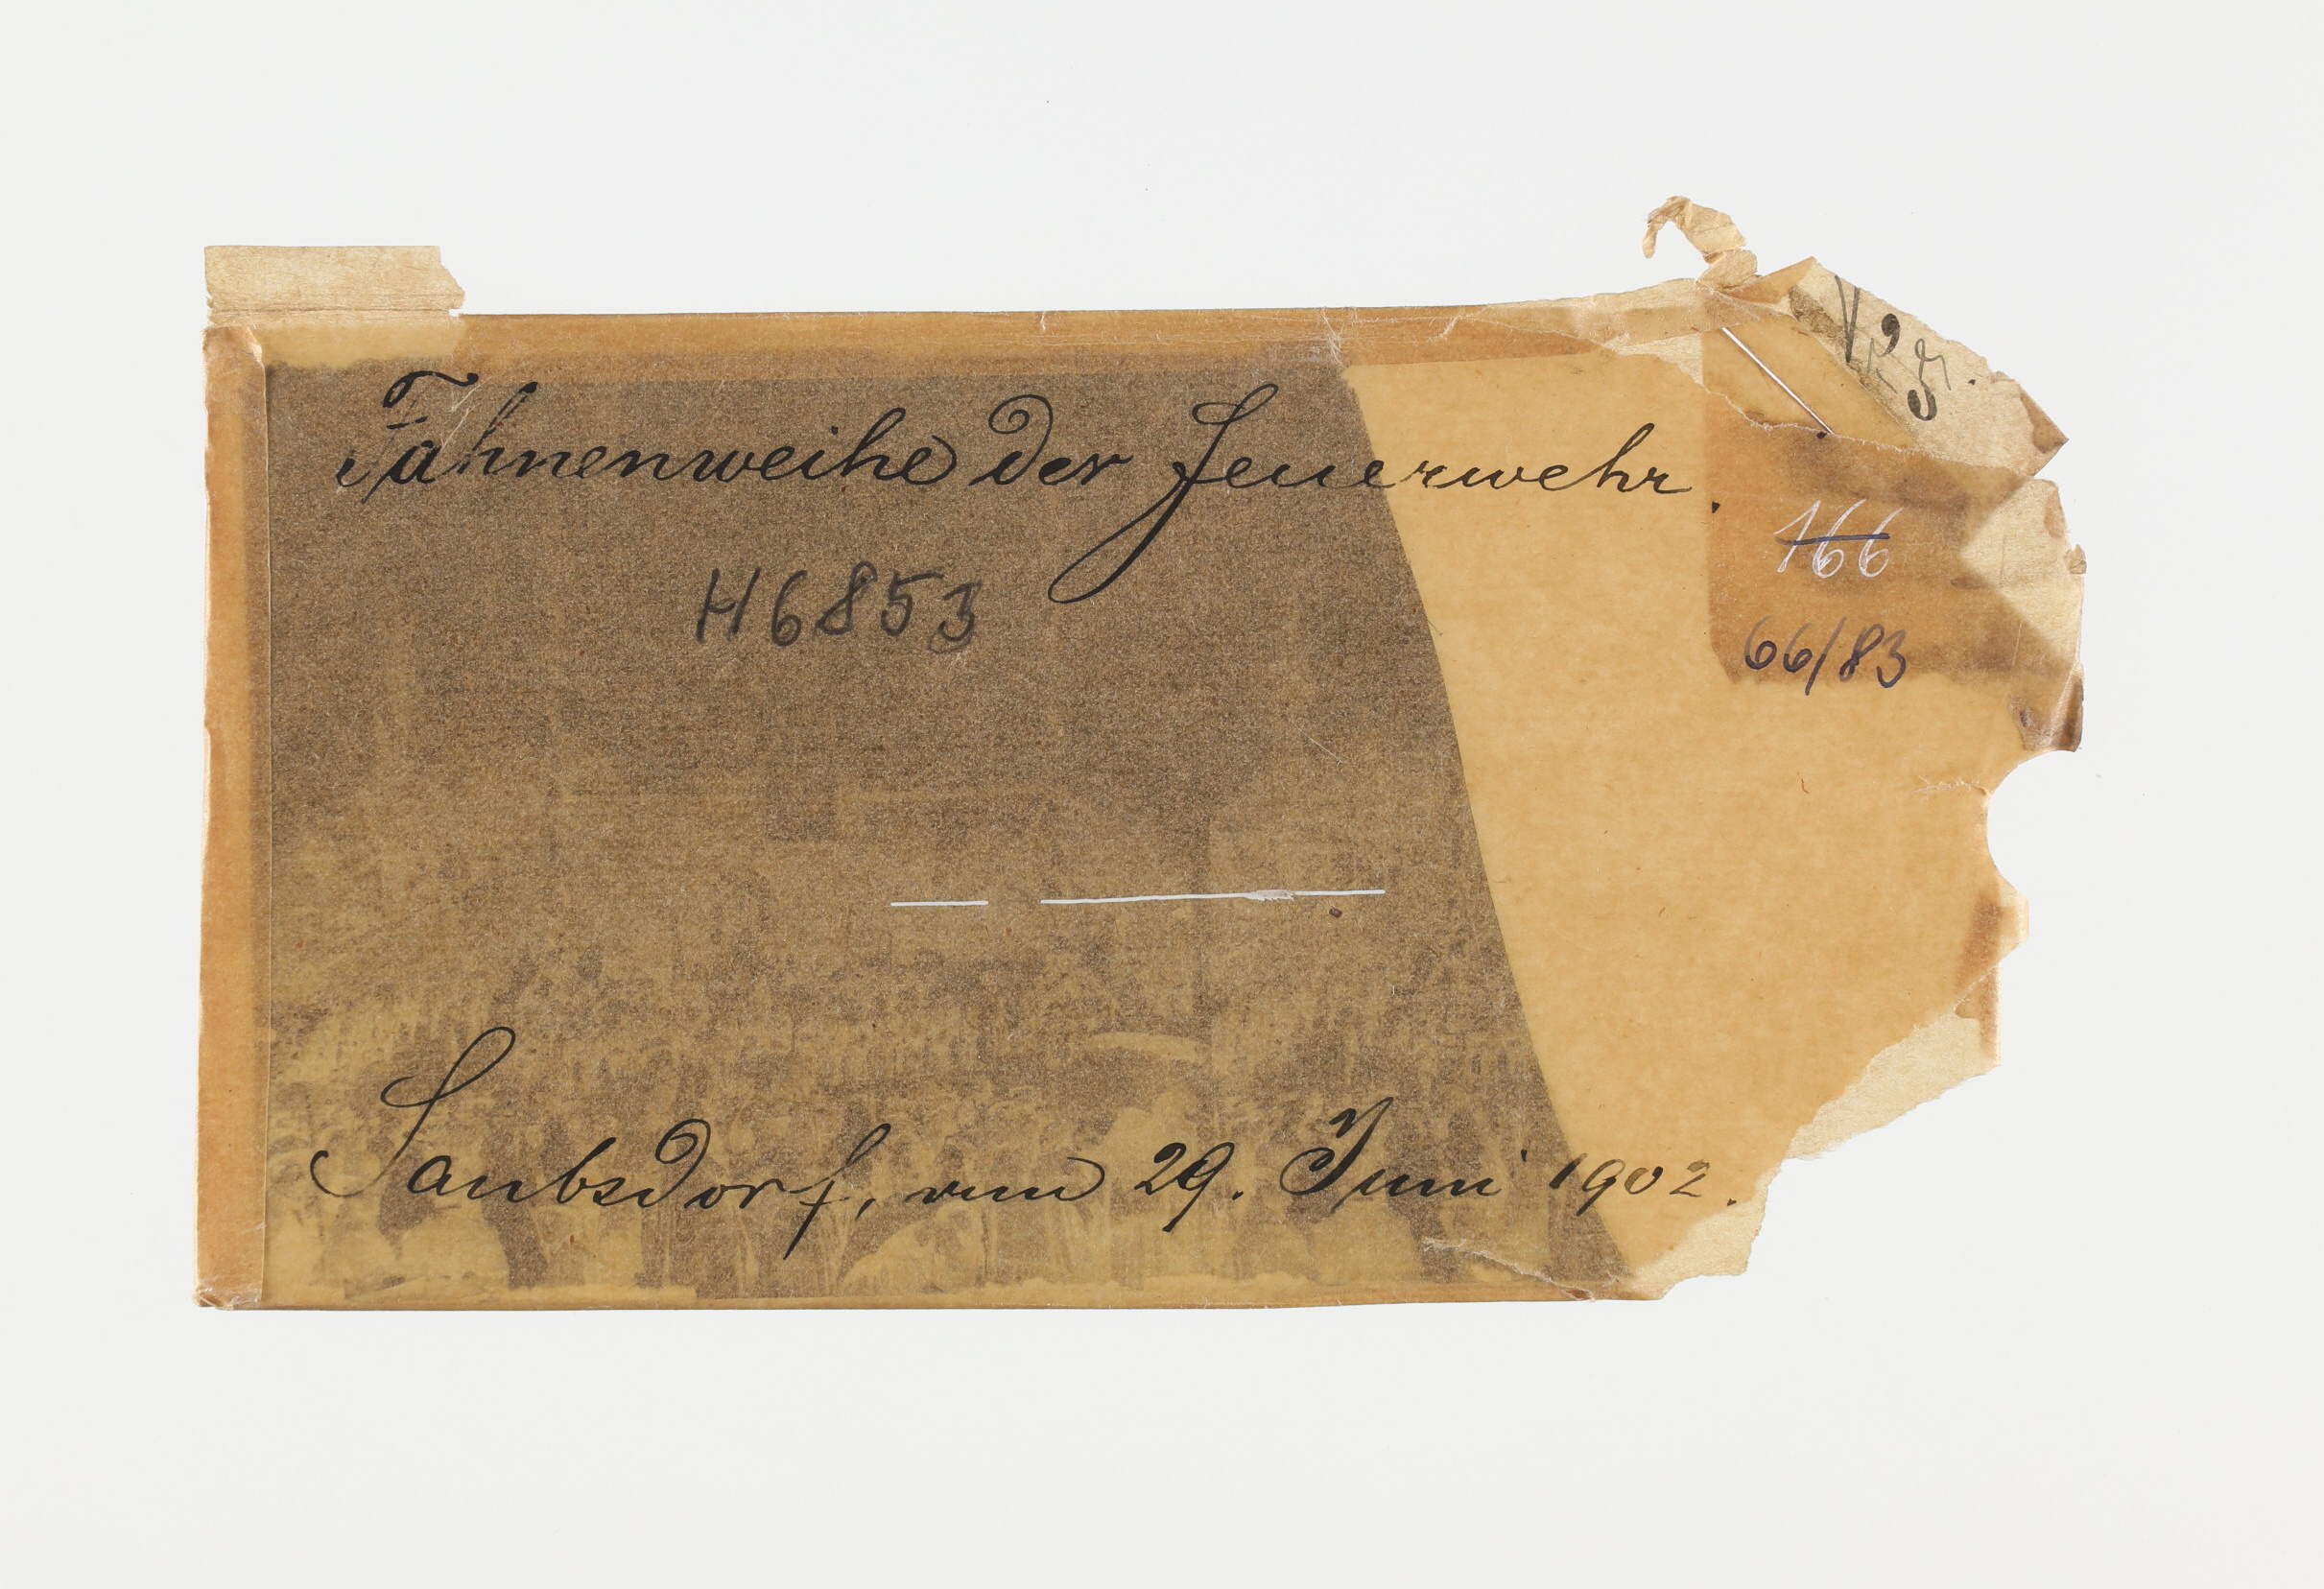 Fahnenweihe der Feuerwehr.
H6853
166
66/83
Saubsdorf, am 29. Juni 1902.